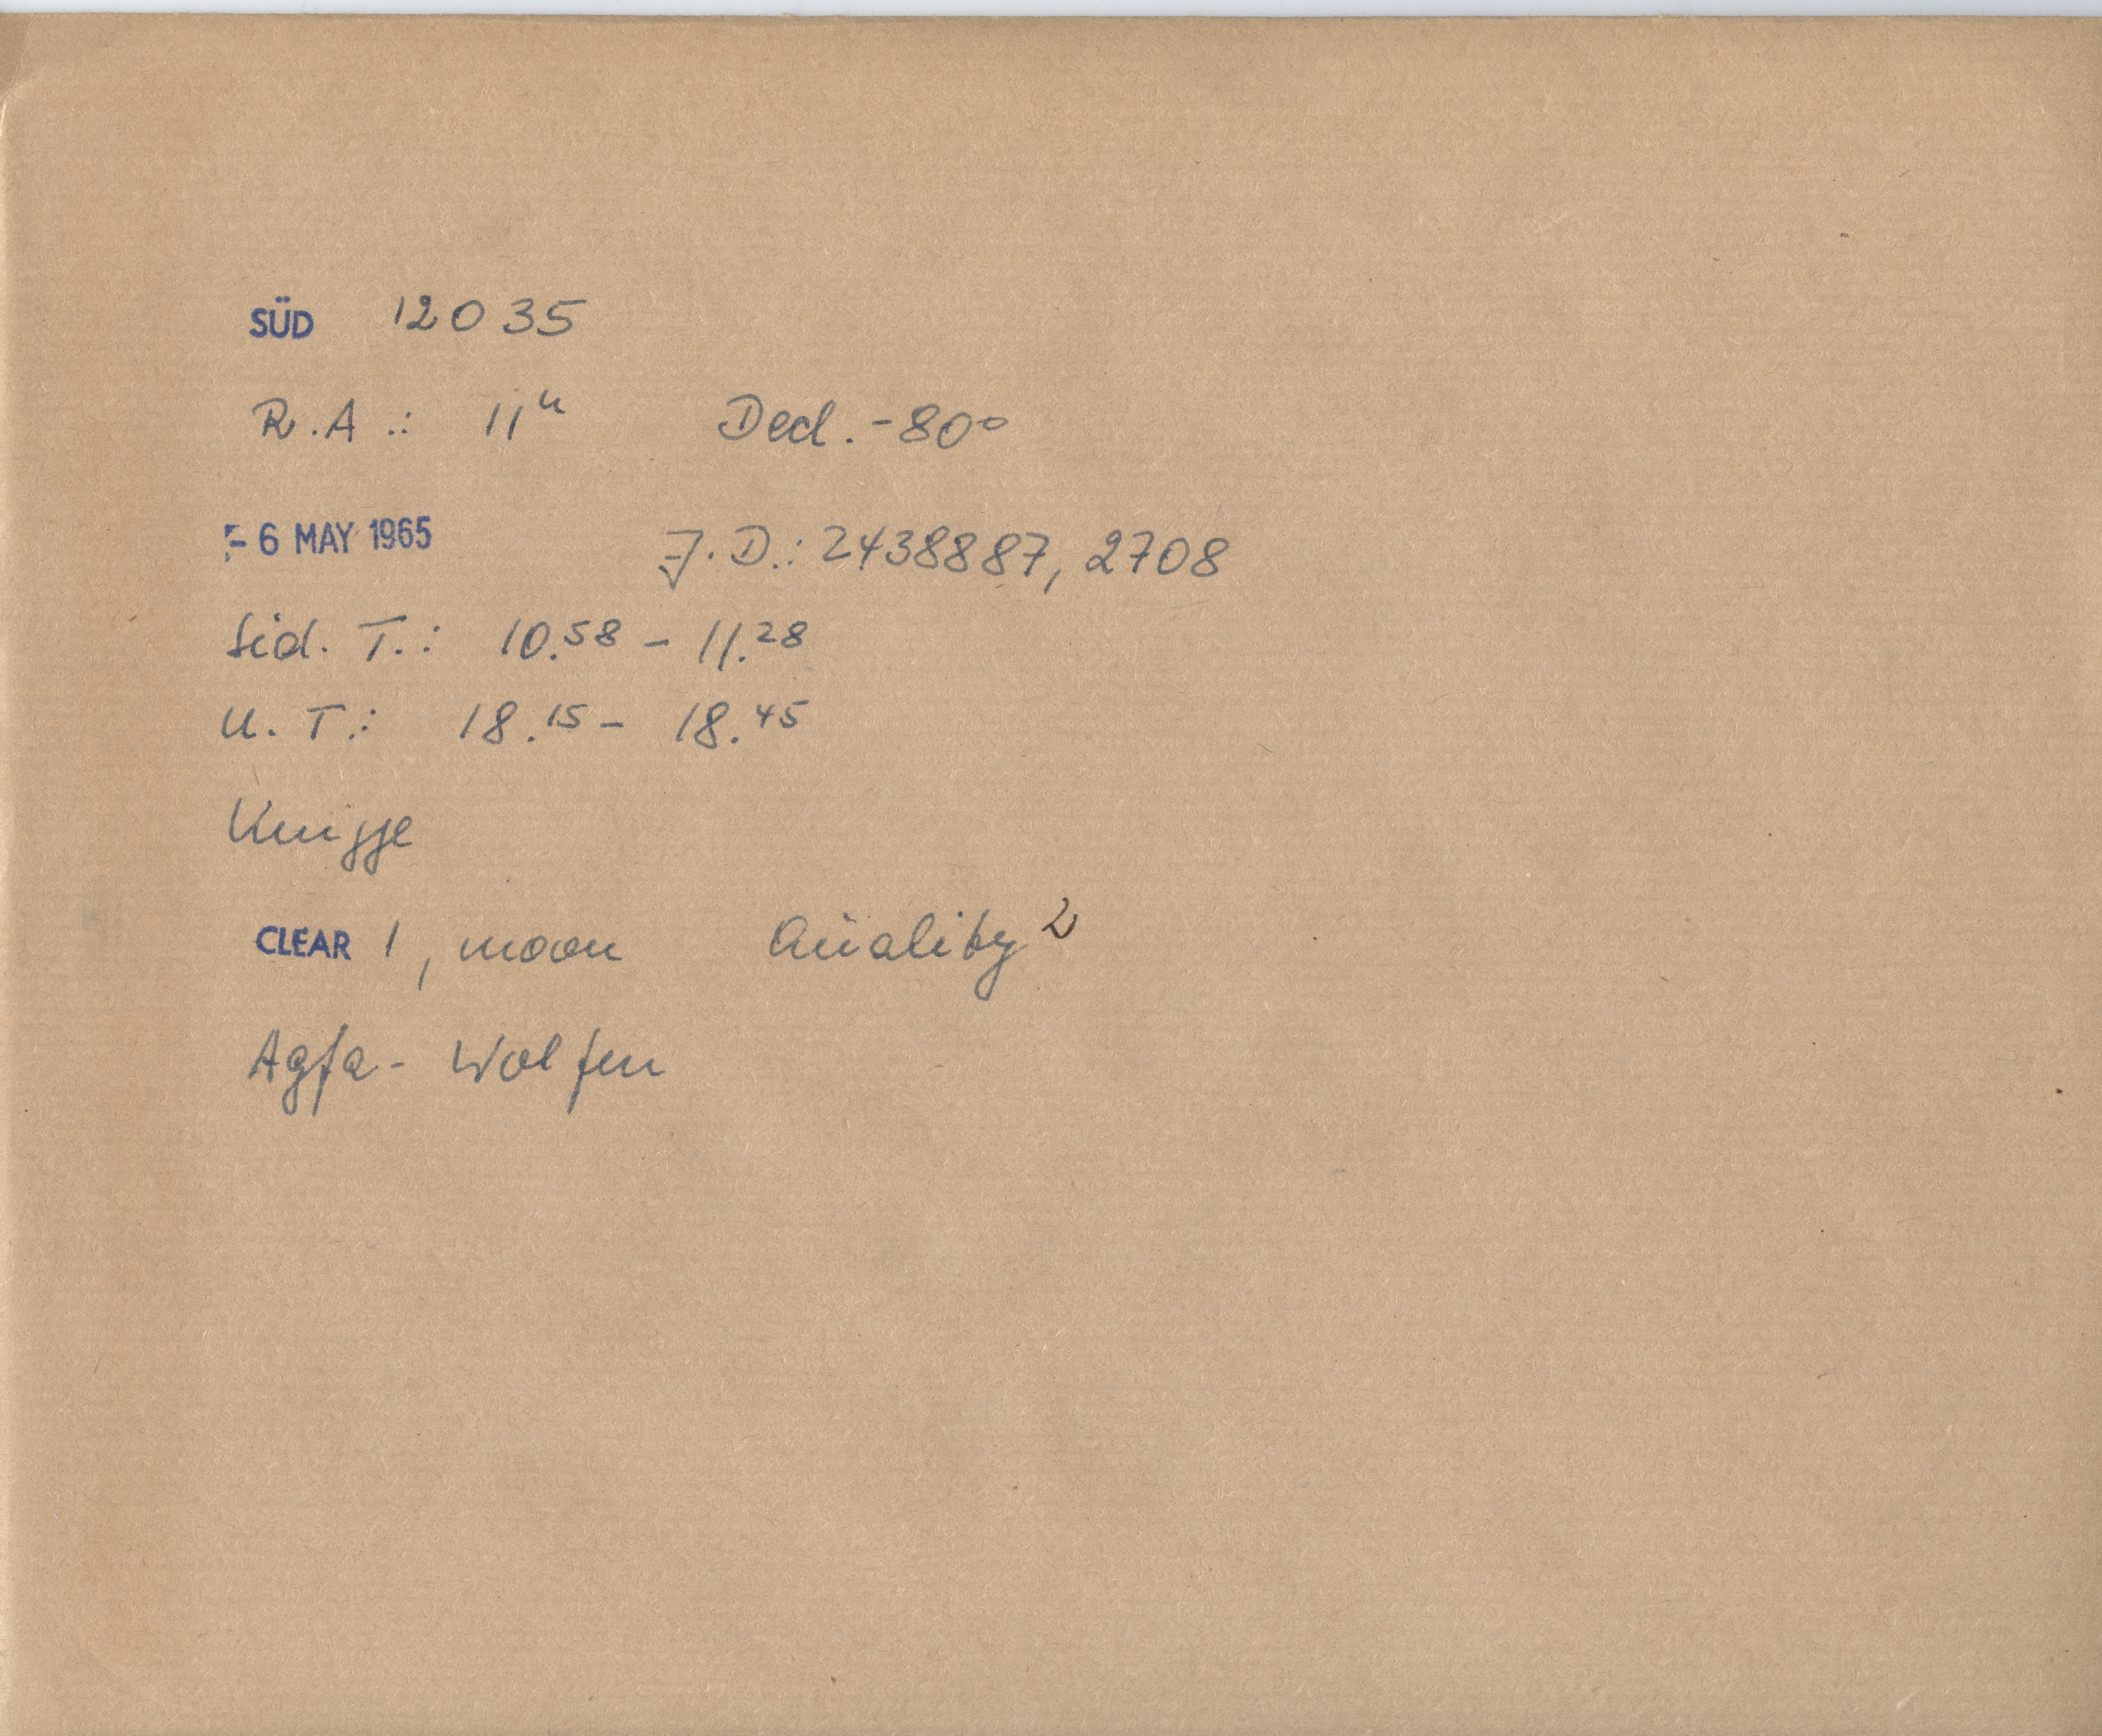 SÜD 12035
R.A.: 11h Decl. -80°
- 6 MAY 1965 J.D.: 2438887,2708
Sid. T.: 10.58 - 11.28
U.T.: 18.15 - 18.45
Knigge
CLEAR 1, moon Quality 2
Agfa-Wolfen